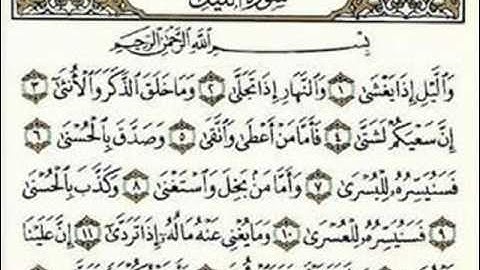 سورة الليل
بِسْمِ اللَّهِ الرَّحْمَٰنِ الرَّحِيمِ
وَاللَّيْلِ إِذَا يَغْشَىٰ ١ وَالنَّهَارِ إِذَا تَجَلَّىٰ ٢ وَمَا خَلَقَ الذَّكَرَ وَالْأُنثَىٰ ٣
إِنَّ سَعْيَكُمْ لَشَتَّىٰ ٤ فَأَمَّا مَنْ أَعْطَىٰ وَاتَّقَىٰ ٥ وَصَدَّقَ بِالْحُسْنَىٰ ٦
فَسَنُيَسِّرُهُ لِلْيُسْرَىٰ ٧ وَأَمَّا مَن بَخِلَ وَاسْتَغْنَىٰ ٨ وَكَذَّبَ بِالْحُسْنَىٰ
٩ فَسَنُيَسِّرُهُ لِلْعُسْرَىٰ ١٠ وَمَا يُغْنِي عَنْهُ مَالُهُ إِذَا تَرَدَّىٰ ١١ إِنَّ عَلَيْنَا